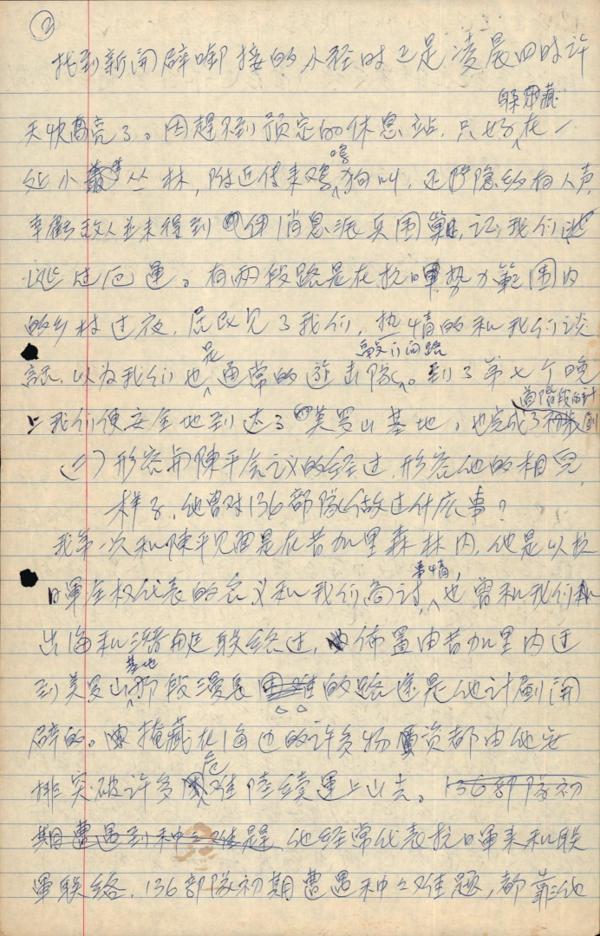 ③
找到新開辟啣接的小径时已是凌晨四时许
天快亮了。因趕不到預定的休息站,只好躲藏在一
处小丛林,附近传来鸡鳴狗叫,还隐约有人声,
幸虧敌人並未得到消息派兵围剿,让我们
逃过厄運。有两段路是在抗日軍势力範围内
的乡村过夜,居民见了我们,热情的和我们谈
話,以为我们也是通常的遊击队。到了第七个晚
上我们便安全地到达了美罗山基地,也完成了首階段的计劃
(七)形容与陳平会议的经过,形容他的相貌
样子,他曾对136部队做过什庅事?
我第一次和陳平见面是在昔加里森林内,他是以抗
日軍全权代表的名义和我们商讨事情,也曾和我们
出海和潛艇联络过,佈置由昔加里内进
到美罗山基地那段漫長的路途是他计劃開
辟的。掩藏在海边的许多物资都由他安
排突破许多危难陸续運上山去。136部隊初
期遭遇到种之难是 他经常代表抗日軍来和联
軍联络,136部隊初期遭遇种之难題,都靠他